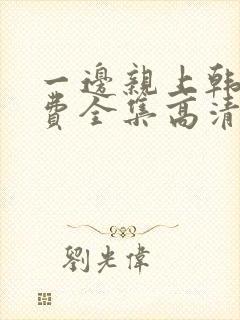 一邊親上韩
費全集高清
劉光偉